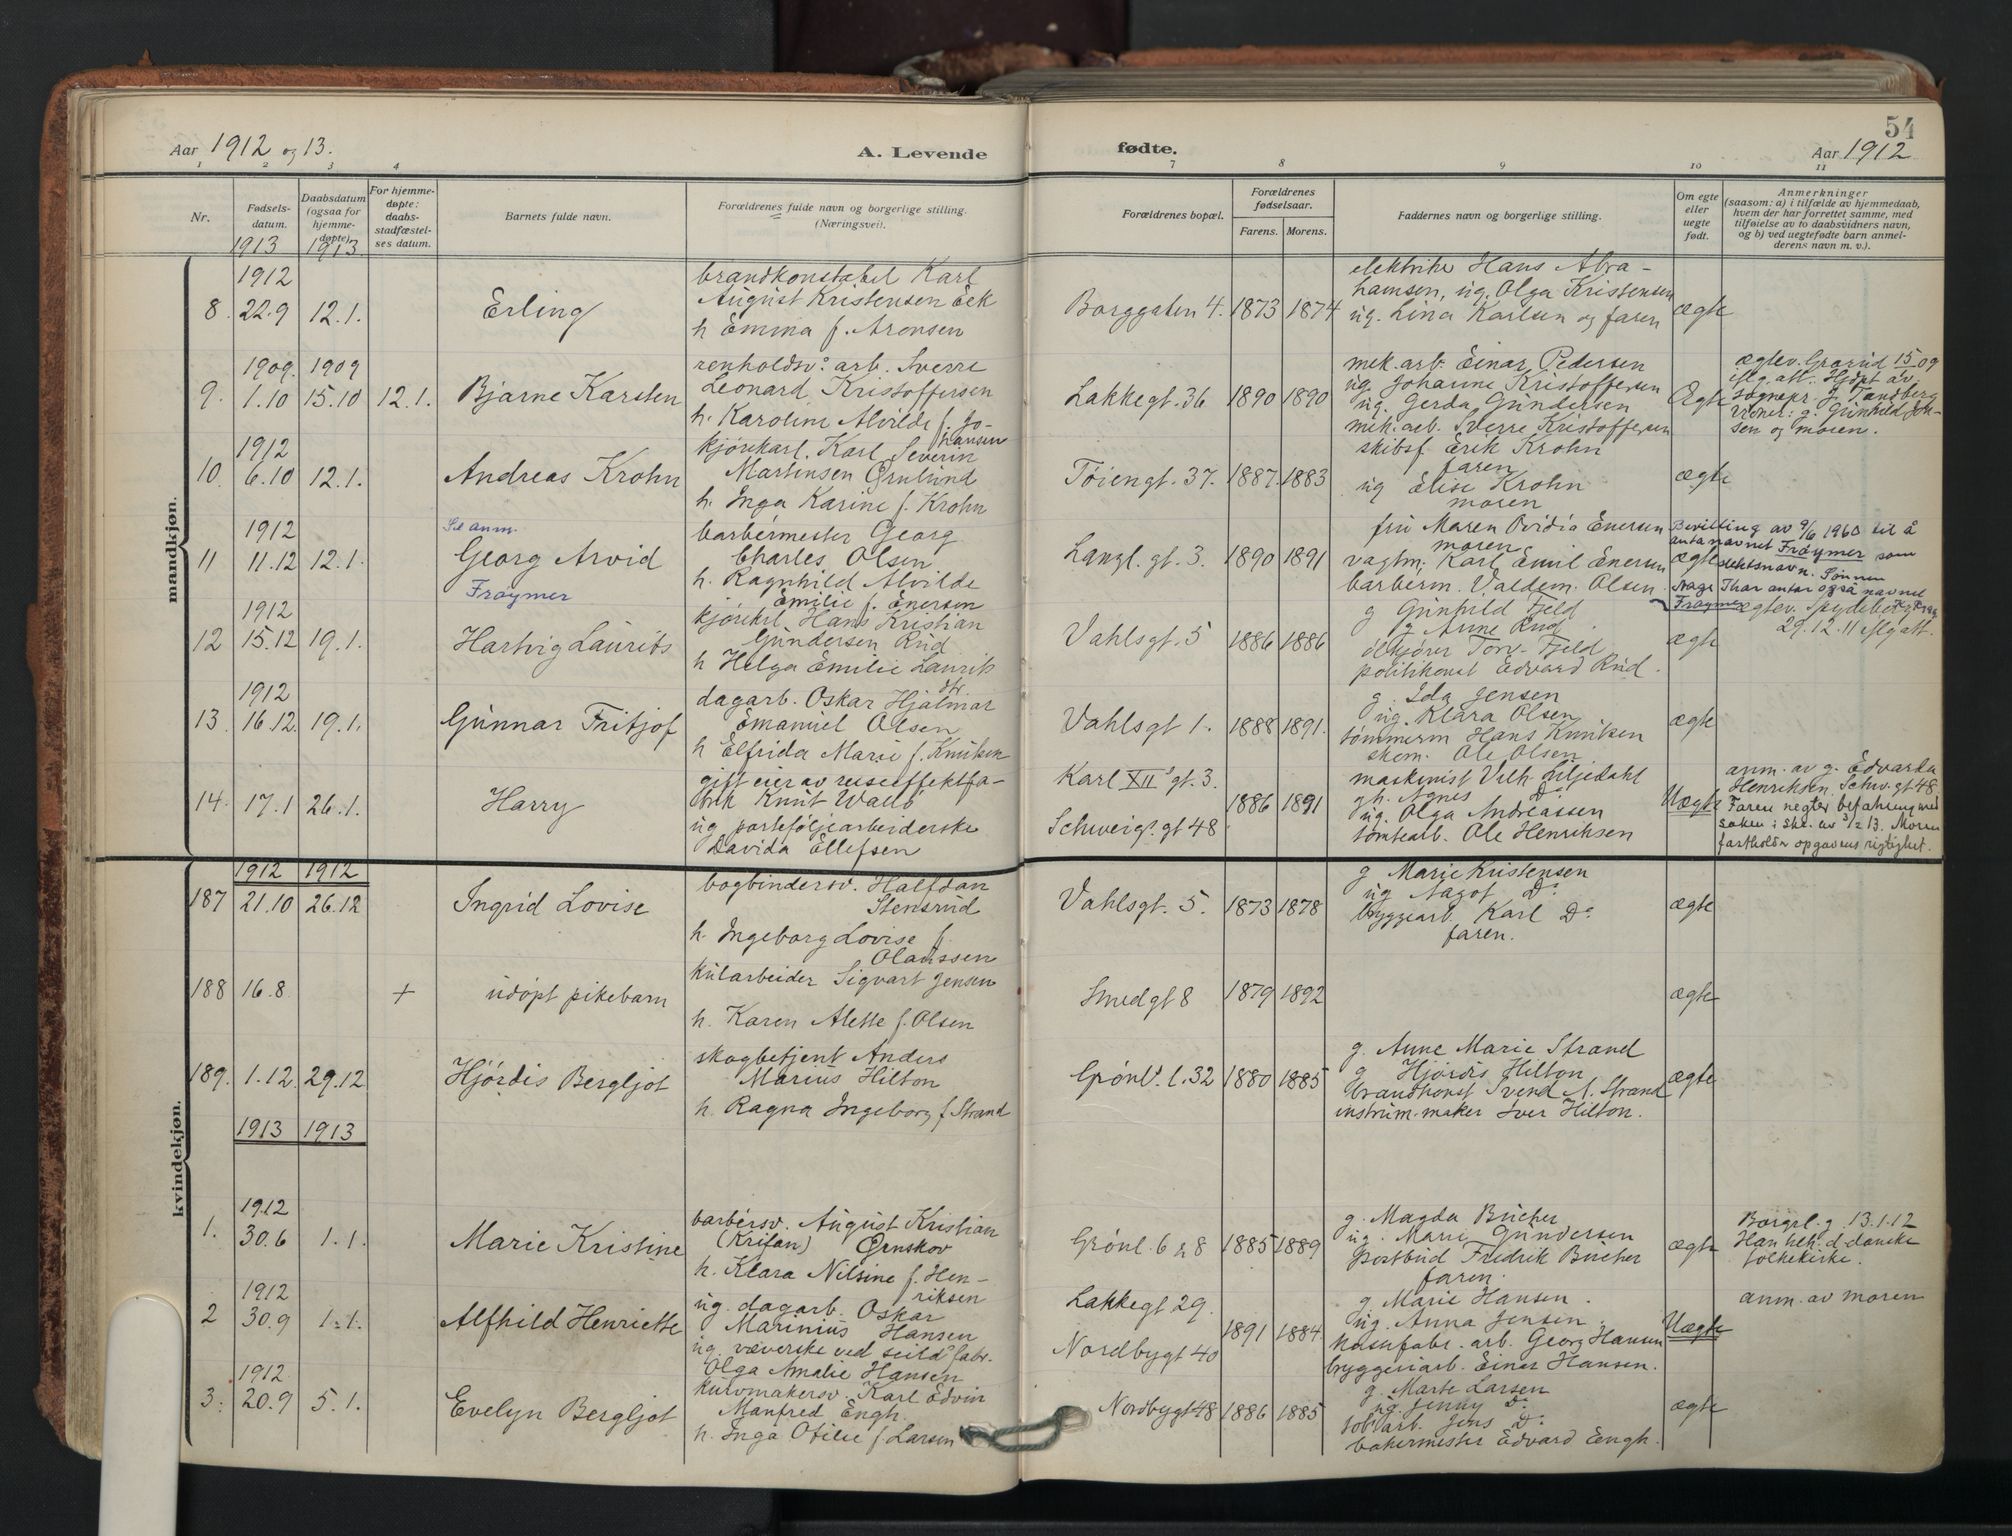 Aar 1912 og 13.
A. Levende
fødte.
54
Aar 1912
1 2 3 4 7 8 9 10 11
Nr.
Fødsels-
datum.
1913
Daabsdatum
(ogsaa for
hjemme-
døpte).
1913
For hjemme-
døpte:
daabs-
stadfæstel-
ses datum.
Barnets fulde navn.
Forældrenes fulde navn og borgerlige stilling.
(Næringsvei).
Forældrenes bopæl.
Forældrenes
fødselsaar.
Farens. Morens.
Faddernes navn og borgerlige stilling.
Om egte
eller
uegte
født.
Anmerkninger
(saasom: a) i tilfælde av hjemmedaab,
hvem der har forrettet samme, med
tilføielse av to daabsvidners navn,
og b) ved uegtefødte barn anmel-
derens navn m. v.).
mandkjøn.
8. 1912 22.9 12.1. Erling
brandkonstabel Karl
August Kristensen Eek
h Emma f. Aronsen
Borggaten 4. 1873 1874
elektriker Hans Abra-
hamsen, ug. Olga Kristensen
ug. Lina Karlsen og faren
ægte
9. 1909. 1.10 1909 15.10 12.1. Bjarne Karsten
renholdsv: arb. Sverre
Leonard Kristoffersen
h. Karoline Alvilde f. Jo-
hansen
Lakkegt. 36 1890 1890
mek. arb. Einar Pedersen
ug. Johanne Kristoffersen
ug. Gerda Gundersen
mek. arb. Sverre Kristoffersen
Ægte
ægtev. Grorud 15 09
iflg. att. Hjdpt av
sognepr. J. Tandberg
Vidner: g. Gunhild Jon-
sen og moren.
10. 1912 6.10 12.1. Andreas Krohn
kjørekarl. Karl Severin
Martinsen Ørnlund
h. Inga Karine f. Krohn
Tøiengt. 37. 1887. 1883
skibsf. Erik Krohn
faren
ug Elise Krohn
moren
ægte
11 1912 11.12 12.1.
Se anm.
Georg Arvid
Frøymer
barbermester Georg
Charles Olsen
h. Ragnhild Alvilde
Emilie f. Enersen
Langl. gt. 3. 1890 1891
fru Maren Ovidia Enersen
moren
vagtm. Karl Emil Enersen
barberm. Valdem. Olsen
ægte
Bevilling av 9/6 1960 til å
anta navnet Frøymer som
slektsnavn. Sønnen
Aage Thor antar også navnet
Frøymer
12 1912 15.12 19.1. Hartvig Laurits
kjørekrl. Hans Kristian
Gundersen Rud
h Helga Emilie Laurits
dtr.
Vahlsgt. 5 1886 1886
g Gunhild Fjeld
g Anne Rud
ølkjører Torv. Fjeld
politikonst Edvard Rud.
ægte
ægtev. Spydeberg
29.12.11 iflg att.
13. 1912 16.12. 19.1. Gunnar Fritjof
dagarb. Oskar Hjalmar
Emanuel Olsen
h Elfrida Marie f. Knutsen
Vahlsgt 1. 1888 1891.
g. Ida Jensen
ug. Klara Olsen
tømmerm Hans Knutsen
skom. Ole Olsen
ægte
14. 17.1 26.1. Harry
gift eier av reiseeffektfa-
brik Knut
ug. porteføljearbeiderske
Davida Ellefsen
Karl XII's gt. 3.
Schweigs. gt 48 1886 1891
maskinist Vilh. Liljedahl
gh. Agnes Do
ug. Olga Andreassen
tomtearb. Ole Henriksen
Uægte
anm. av g. Edvarda
Henriksen. Schw. gt 48.
Faren negter befatning med
saken i skr. av 3/2 13. Moren
fastholder opgavens rigtighet.
kvindekjøn.
1912 1912
187 21.10 26.12 Ingrid Lovise
bogbindersv. Halfdan
Stensrud
h. Ingeborg Lovise f.
Olaussen
Vahlsgt. 5. 1873 1878
g Marie Kristensen
ug Aagot Do
bryggearb. Karl Do
faren.
ægte
188 16.8 + udøpt pikebarn
kularbeider Sigvart Jensen
h. Karen Alette f. Olsen
Smedgt 8 1879 1892 ægte
189. 1.12. 29.12 Hjørdis Bergljot
skogbetjent Anders
Marius Hilton
h. Ragna Ingeborg f Strand
Grønl. l. 32 1880 1885
g. Anne Marie Strand
g Hjørdis Hilton
brandkonst Svend A. Strand
instrum.maker Iver Hilton.
ægte
1913 1913
1. 1912 30.6 1.1. Marie Kristine
barbersv. August Kristian
(Krifan) Ørnskov
h. Klara Nilsine f. Hen-
riksen
Grønl. 6 1885 1889
g. Magda Bucher
ug. Marie Gundersen
Postbud Fredrik Bucher
faren.
ægte
Borgerl. g. 13.1.12
Han tilh. d. danske
folkekirke.
2 1912 30.9 1.1. Alfhild Henriette
ug. dagarb. Oskar
Marinius Hansen
ug. væverske ved seild. fabr.
Olga Amalie Hansen
Lakkegt 29.
Nordbygt 40 1891 1884.
g. Marie Hansen.
ug. Anna Jensen.
arb. Georg Hansen
bryggeriarb. Einar Hansen.
Uægte
anm. av moren
3. 1912 20.9 5.1. Evelyn Bergljot
kurvmakersv. Karl Edvin
Manfred Engh.
h. Inga Otilie f. Larsen
Nordbygt 48 1886 1885
g. Marte Larsen
ug. Jenny Do
tob. arb. Jens Do
bakermester Edvard Engh.
ægte